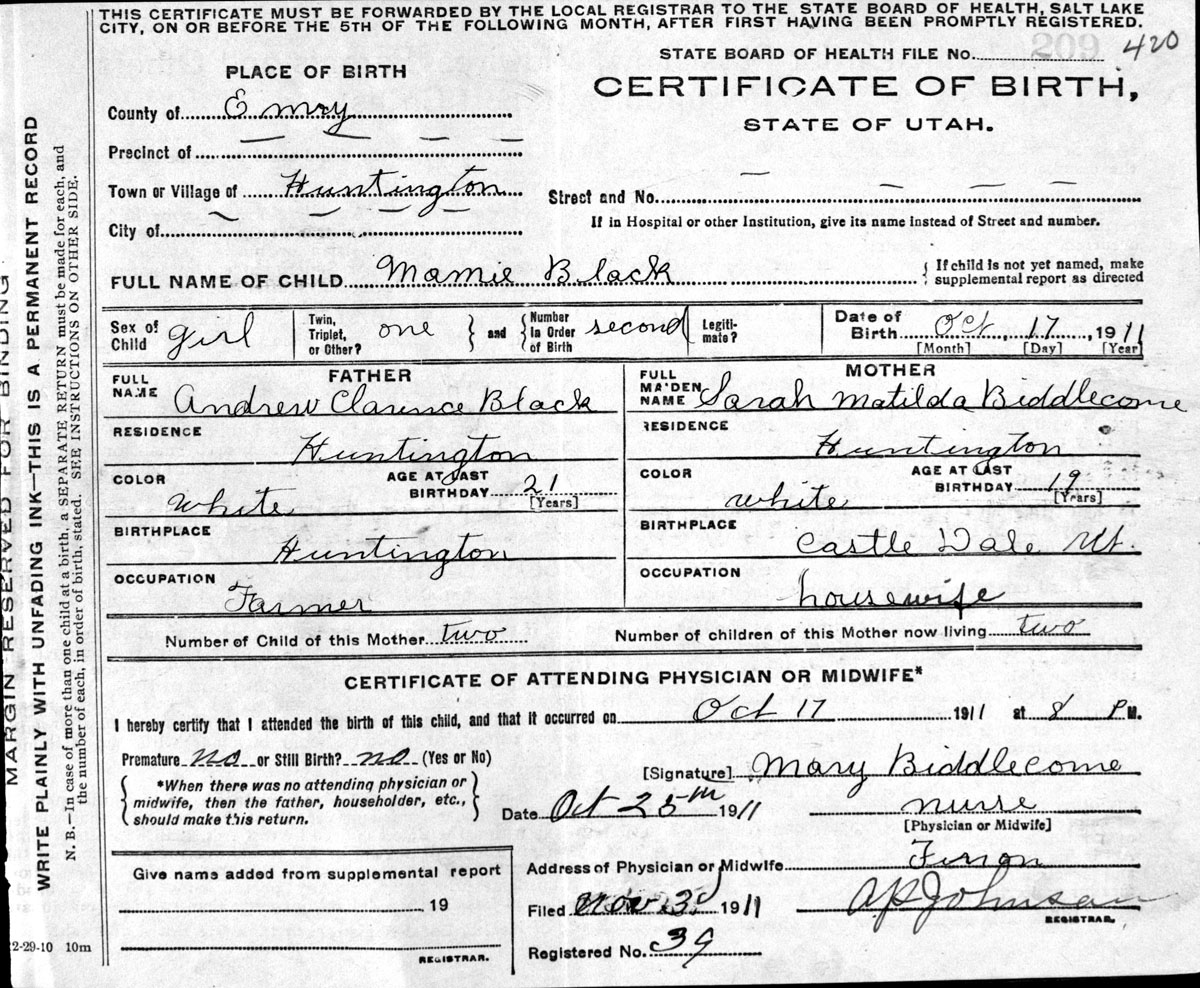 THIS CERTIFICATE MUST BE FORWARDED BY THE LOCAL REGISTRAR TO THE STATE BOARD OF HEALTH, SALT LAKE
CITY, ON OR BEFORE THE 5TH OF THE FOLLOWING MONTH, AFTER FIRST HAVING BEEN PROMPTLY REGISTERED.
STATE BOARD OF HEALTH FILE No. 209 420
PLACE OF BIRTH
CERTIFICATE OF BIRTH,
STATE OF UTAH.
County of Emry
Precinct of
Town or Village of Huntington
Street and No.
City of
If in Hospital or other Institution, give its name instead of Street and number.
FULL NAME OF CHILD Mamie Black
If child is not yet named, make
supplemental report as directed
Sex of
Child girl
Twin,
Triplet,
or Other? one
and
Number
in Order
of Birth second
Legiti-
mate?
Date of
Birth Oct 17, 1911
[Month] [Day] [Year
FATHER
FULL
NAME Andrew Clarence Black
RESIDENCE
Huntington
COLOR
white
AGE AT LAST
BIRTHDAY 21
[Years]
BIRTHPLACE
Huntington
OCCUPATION
Farmer
MOTHER
FULL
MAIDEN
NAME Sarah Matilda Biddlecome
RESIDENCE
Huntington
COLOR
white
AGE AT LAST
BIRTHDAY 19
[Years]
BIRTHPLACE
Castle Dale Ut.
OCCUPATION
housewife
Number of Child of this Mother two
Number of children of this Mother now living two
CERTIFICATE OF ATTENDING PHYSICIAN OR MIDWIFE*
I hereby certify that I attended the birth of this child, and that it occurred on Oct 17 1911 at 8 P M.
Premature no or Still Birth? no (Yes or No)
*When there was no attending physician or
midwife, then the father, householder, etc.,
should make this return.
[Signature] Mary Biddlecome
Date Oct 25th 1911
nurse
[Physician or Midwife]
Give name added from supplemental report
19
REGISTRAR.
Address of Physician or Midwife Ferron
Filed Nov 3, 1911
A P Johnson
REGISTRAR.
Registered No. 39
2-29-10 10m
MARGIN RESERVED FOR BINDING
WRITE PLAINLY WITH UNFADING INK—THIS IS A PERMANENT RECORD
N. B.—In case of more than one child at a birth, a SEPARATE RETURN must be made for each, and
the number of each, in order of birth, stated. SEE INSTRUCTIONS ON OTHER SIDE.